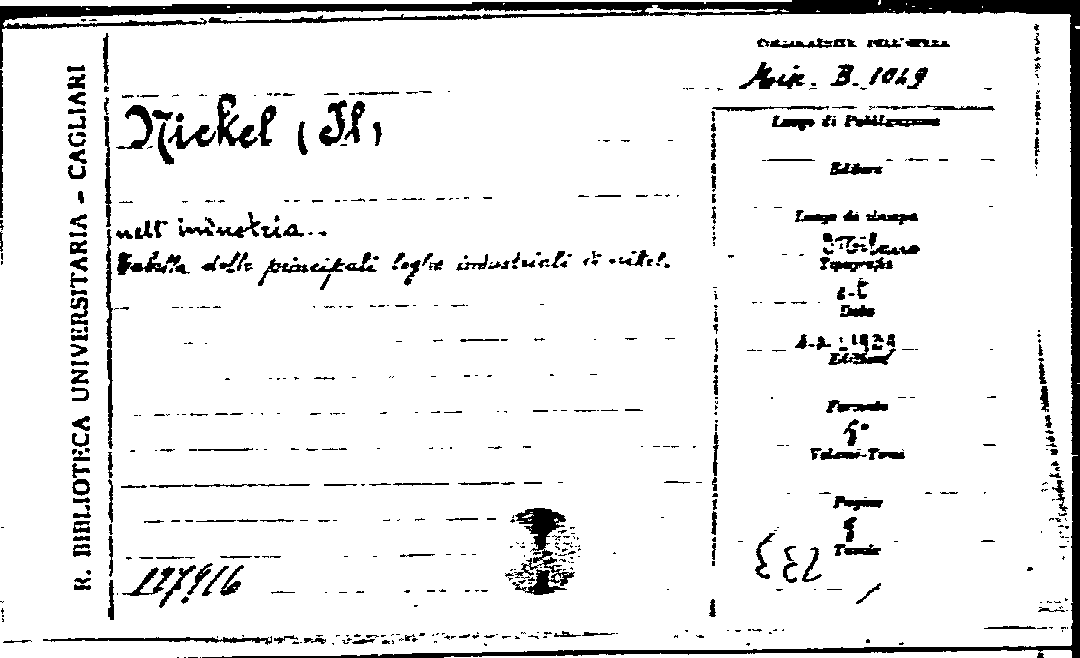 R. BIBLIOTECA UNIVERSITARIA - CAGLIARI
COLLOCAZIONE DELL'OPERA
Misc. B. 1049
Nickel (Il)
nell' industria...
Tabella delle principali leghe industriali di nikel.
Luogo di Pubblicazione
Editore
Luogo di stampa
Milano
Tipografia
Data
Edizione
Formato
Volumi-Tomi
Pagine
Tavole
127916